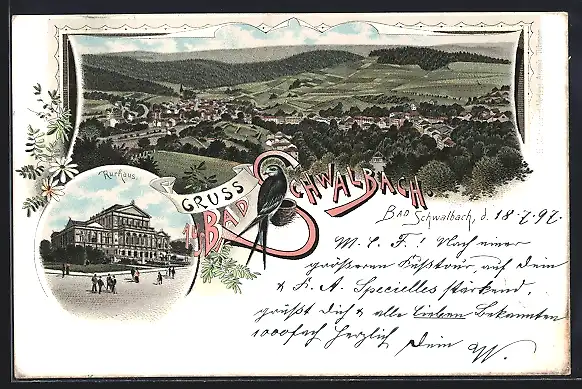 Kurhaus.
GRUSS
A. BAD SCHWALBACH.
BAD Schwalbach, d. 18.7.97.
M. l. F.! Nach einer
größeren Fußtour, auf Dein
& F. A. Specielles stärkend,
grüßt Dich & alle lieben Bekannten
1000fach herzlich Dein W.